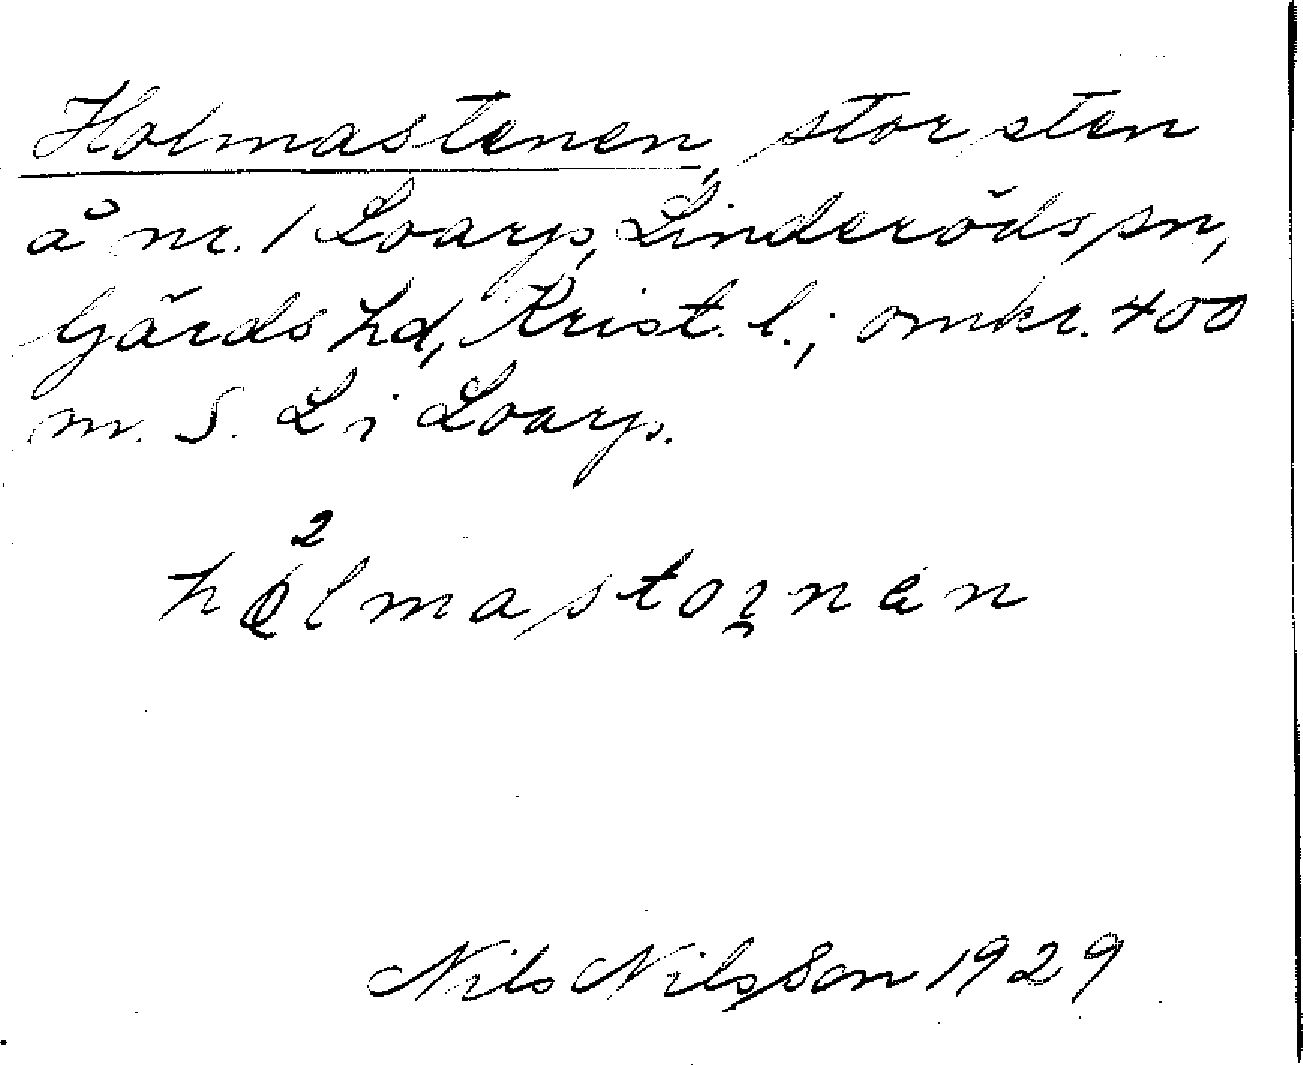 Holmastenen, stor sten
å nr. 1 Loarp, Linderöds sn,
Gärds hd, Krist. l.; omkr. 400
m. S. L i Loarp.
2
Nils Nilsson 1929